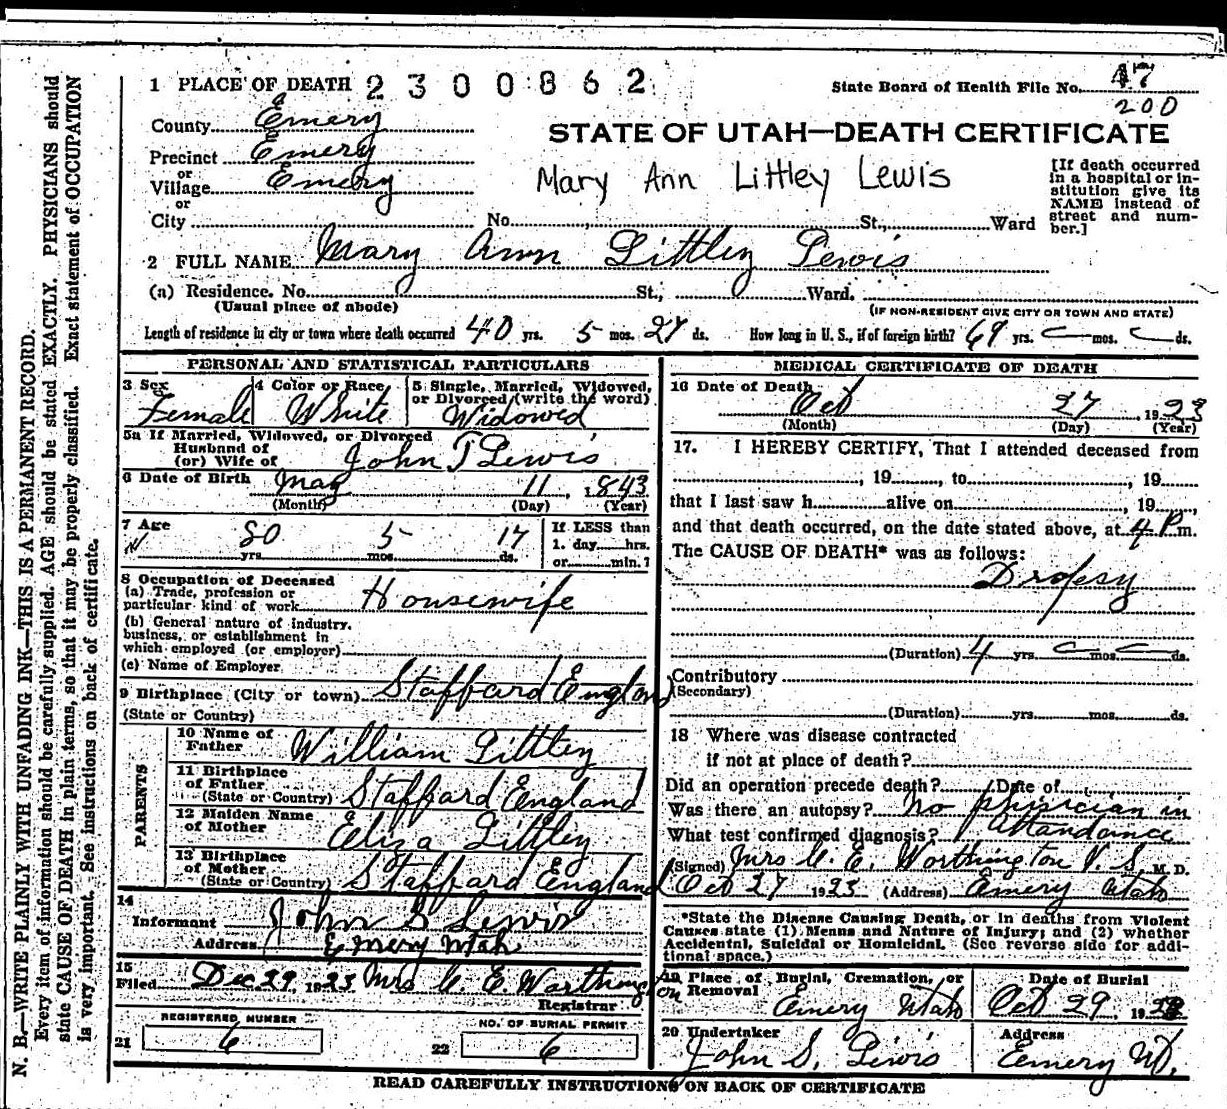 N. B.—WRITE PLAINLY WITH UNFADING INK—THIS IS A PERMANENT RECORD.
Every item of information should be carefully supplied. AGE should be stated EXACTLY. PHYSICIANS should
state CAUSE OF DEATH in plain terms, so that it may be properly classified. Exact statement of OCCUPATION
is very important. See instructions on back of certificate.
1 PLACE OF DEATH 2300862
State Board of Health File No. 47
200
County Emery
STATE OF UTAH—DEATH CERTIFICATE
Precinct Emery
or
Village Emery
or
City
Mary Ann Littley Lewis
[If death occurred
in a hospital or in-
stitution give its
NAME instead of
street and num-
ber.]
No. St., Ward
2 FULL NAME Mary Ann Littley Lewis
(a) Residence. No. St., Ward.
(Usual place of abode) (IF NON-RESIDENT GIVE CITY OR TOWN AND STATE)
Length of residence in city or town where death occurred 40 yrs. 5 mos. 27 ds. How long in U. S., if of foreign birth? 69 yrs. — mos. — ds.
PERSONAL AND STATISTICAL PARTICULARS
3 Sex 4 Color or Race 5 Single, Married, Widowed,
or Divorced (write the word)
Female White Widowed
5a If Married, Widowed, or Divorced
Husband of
(or) Wife of John T Lewis
6 Date of Birth May 11, 1843
(Month) (Day) (Year)
7 Age 80 yrs. 5 mos. 17 ds.
If LESS than
1 day hrs.
or min.?
8 Occupation of Deceased
(a) Trade, profession or
particular kind of work Housewife
(b) General nature of industry,
business, or establishment in
which employed (or employer)
(c) Name of Employer
9 Birthplace (City or town) Staffard England
(State or Country)
PARENTS
10 Name of
Father William Littley
11 Birthplace
of Father
(State or Country) Staffard England
12 Maiden Name
of Mother Eliza Littley
13 Birthplace
of Mother
(State or Country) Staffard England
14
Informant John S Lewis
Address Emery Utah
15
Filed Dec 29, 1923 Mrs C. E. Worthington
Registrar
REGISTERED NUMBER NO. OF BURIAL PERMIT
21 6 22 6
MEDICAL CERTIFICATE OF DEATH
16 Date of Death
Oct 27, 1923
(Month) (Day) (Year)
17. I HEREBY CERTIFY, That I attended deceased from
, 19 , to , 19
that I last saw h alive on , 19
and that death occurred, on the date stated above, at 4 P m.
The CAUSE OF DEATH* was as follows:
Dropsy
(Duration) 4 yrs. — mos. — ds.
Contributory
(Secondary)
(Duration) yrs. mos. ds.
18 Where was disease contracted
if not at place of death?
Did an operation precede death? Date of
Was there an autopsy? No physician in
What test confirmed diagnosis? attandance
(Signed) Mrs C. E. Worthington V. S. M. D.
Oct 27 1923 (Address) Emery Utah
*State the Disease Causing Death, or in deaths from Violent
Causes state (1) Means and Nature of Injury; and (2) whether
Accidental, Suicidal or Homicidal. (See reverse side for addi-
tional space.)
19 Place of Burial, Cremation, or
Removal Date of Burial
Emery Utah Oct 29, 1923
20 Undertaker Address
John S. Lewis Emery Ut.
READ CAREFULLY INSTRUCTIONS ON BACK OF CERTIFICATE